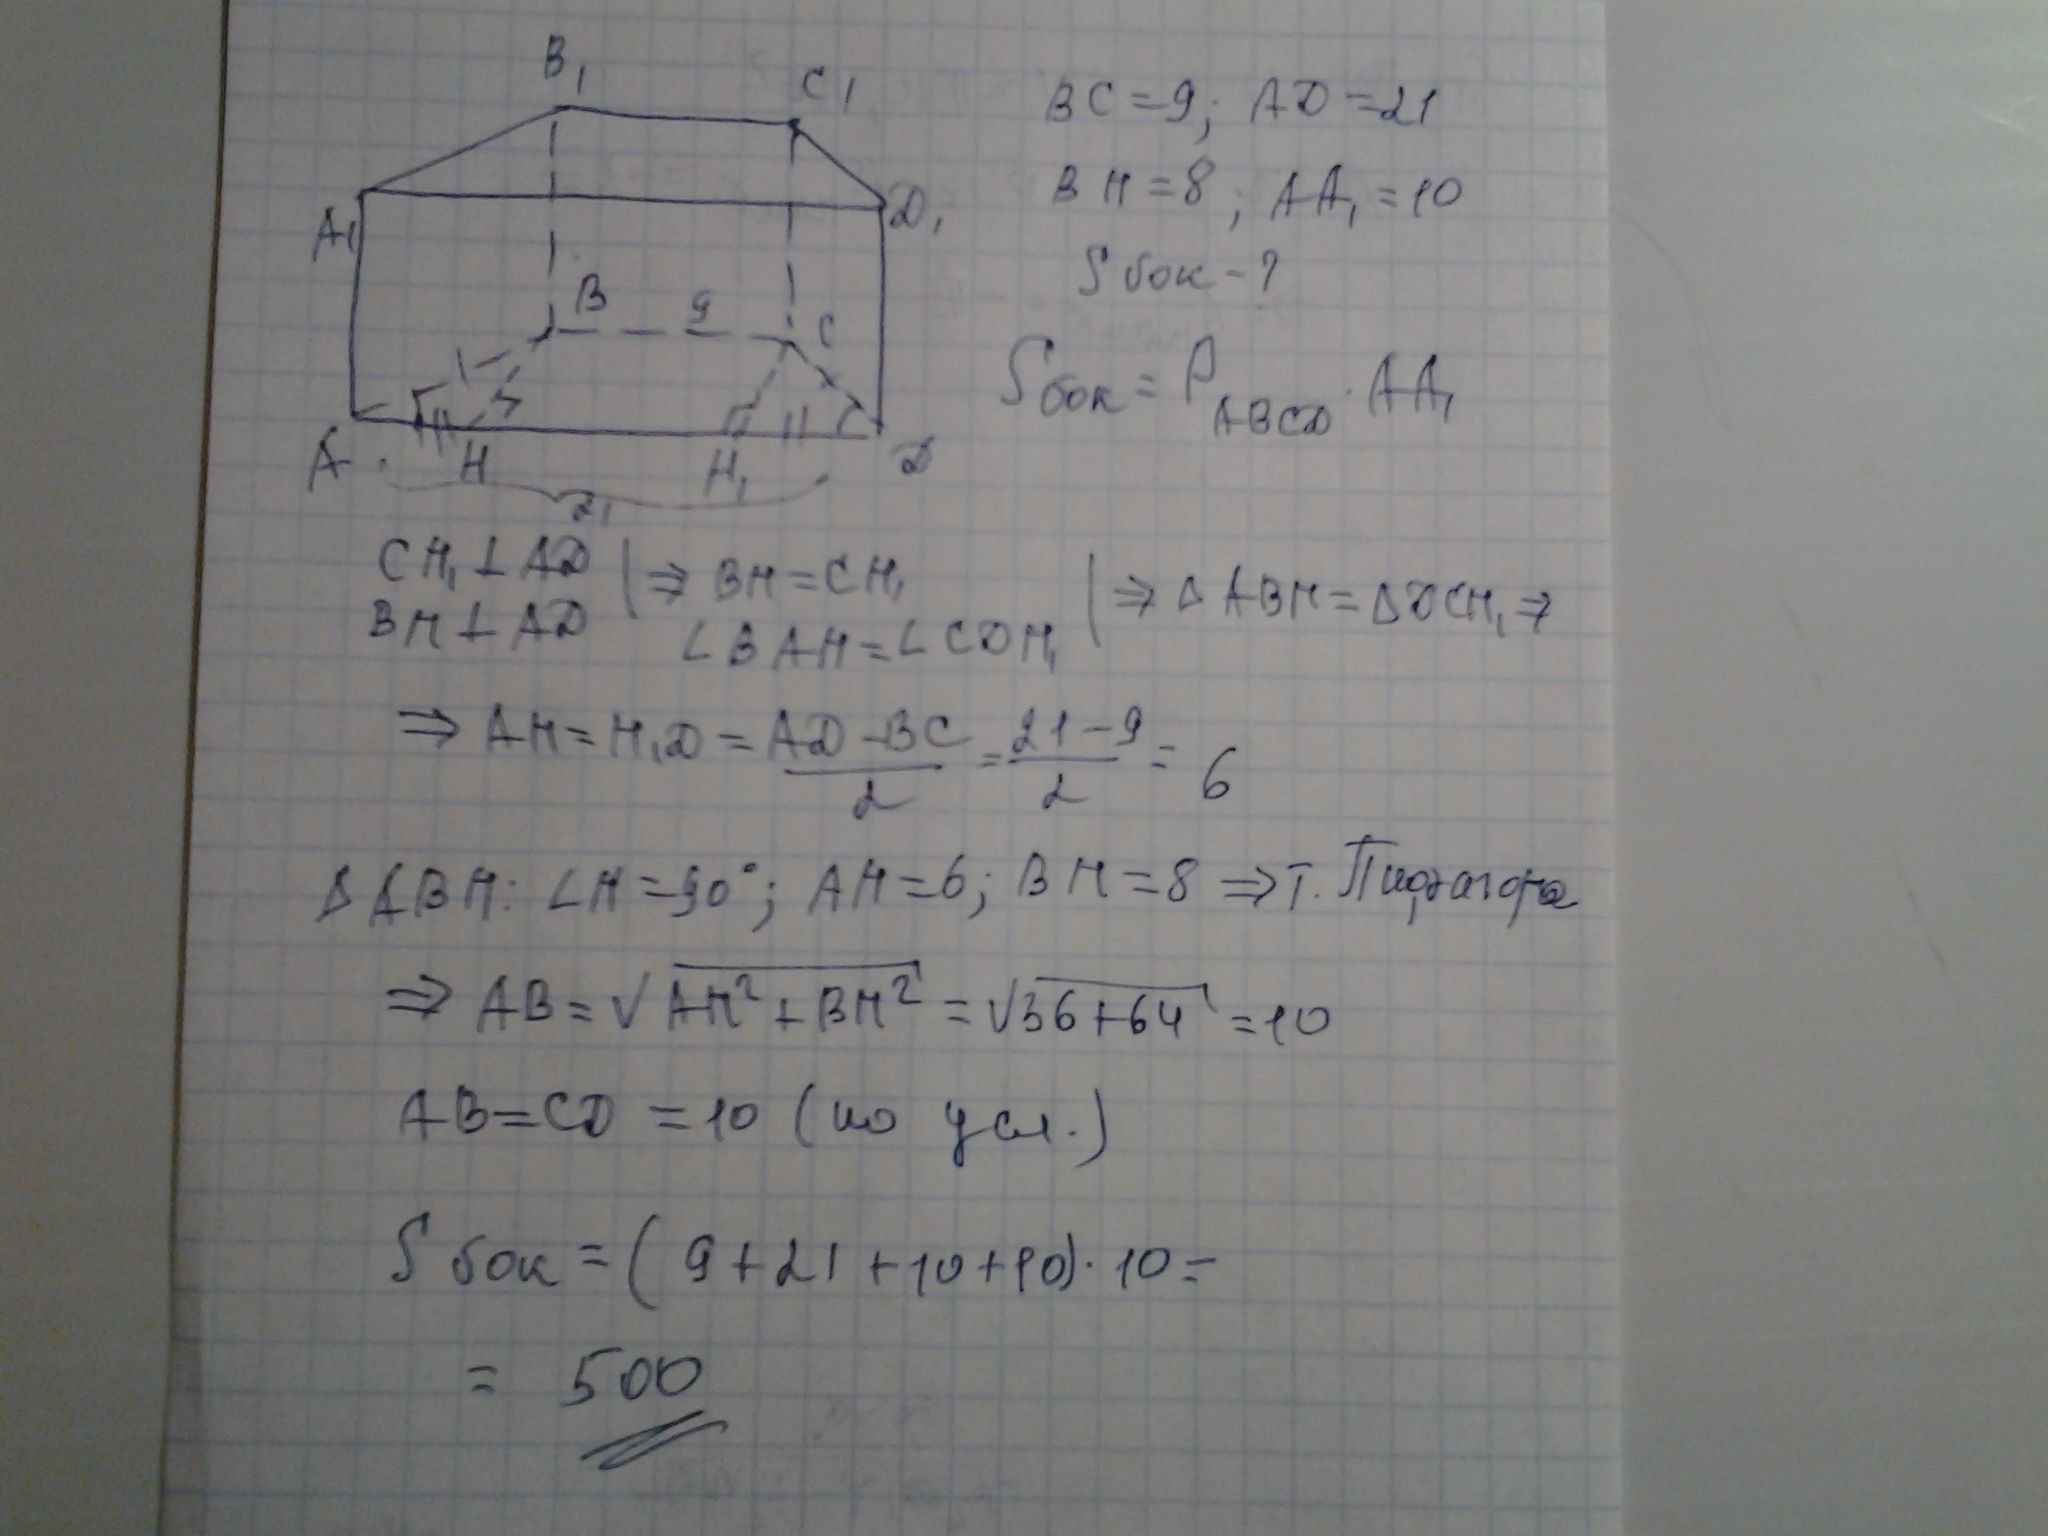 B₁
C₁
A₁
D₁
B
9
C
A
H
H₁
D
21
BC=9; AD=21
BH=8; AA₁=10
Sбок-?
Sбок=P_ABCD·AA₁
CH₁⊥AD | ⇒ BH=CH₁ | ⇒ ΔABH=ΔDCH₁⇒
BH⊥AD ∠BAH=∠CDH₁
⇒ AH=H₁D=(AD-BC)/2=(21-9)/2=6
ΔABH: ∠H=90°; AH=6; BH=8 ⇒ т. Пифагора
⇒ AB=√(AH²+BH²)=√(36+64)=10
AB=CD=10 (по усл.)
Sбок=(9+21+10+10)·10=
=500